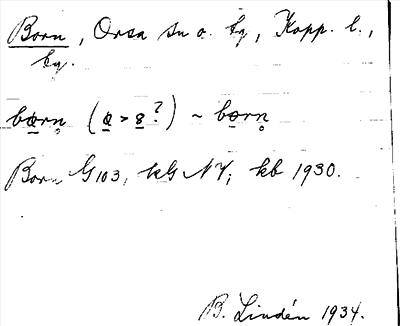 Born, Orsa sn o. tg, Kopp. l.,
by.
born (a > 8?) ~ born
Born G103, kG NV; kb 1930.
B. Lindén 1934.